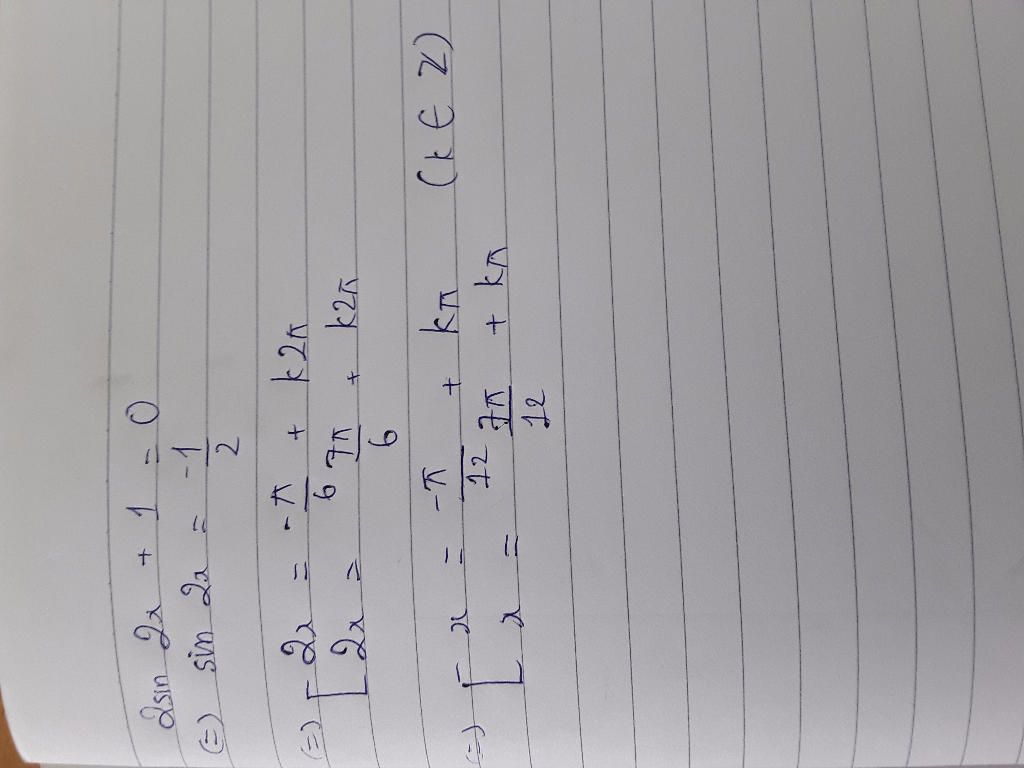 2sin 2x + 1 = 0
(=) sin 2x = -1/2
(=) [ 2x = -π/6 + k2π
2x = 7π/6 + k2π
(=) [ x = -π/12 + kπ (k ∈ Z)
x = 7π/12 + kπ